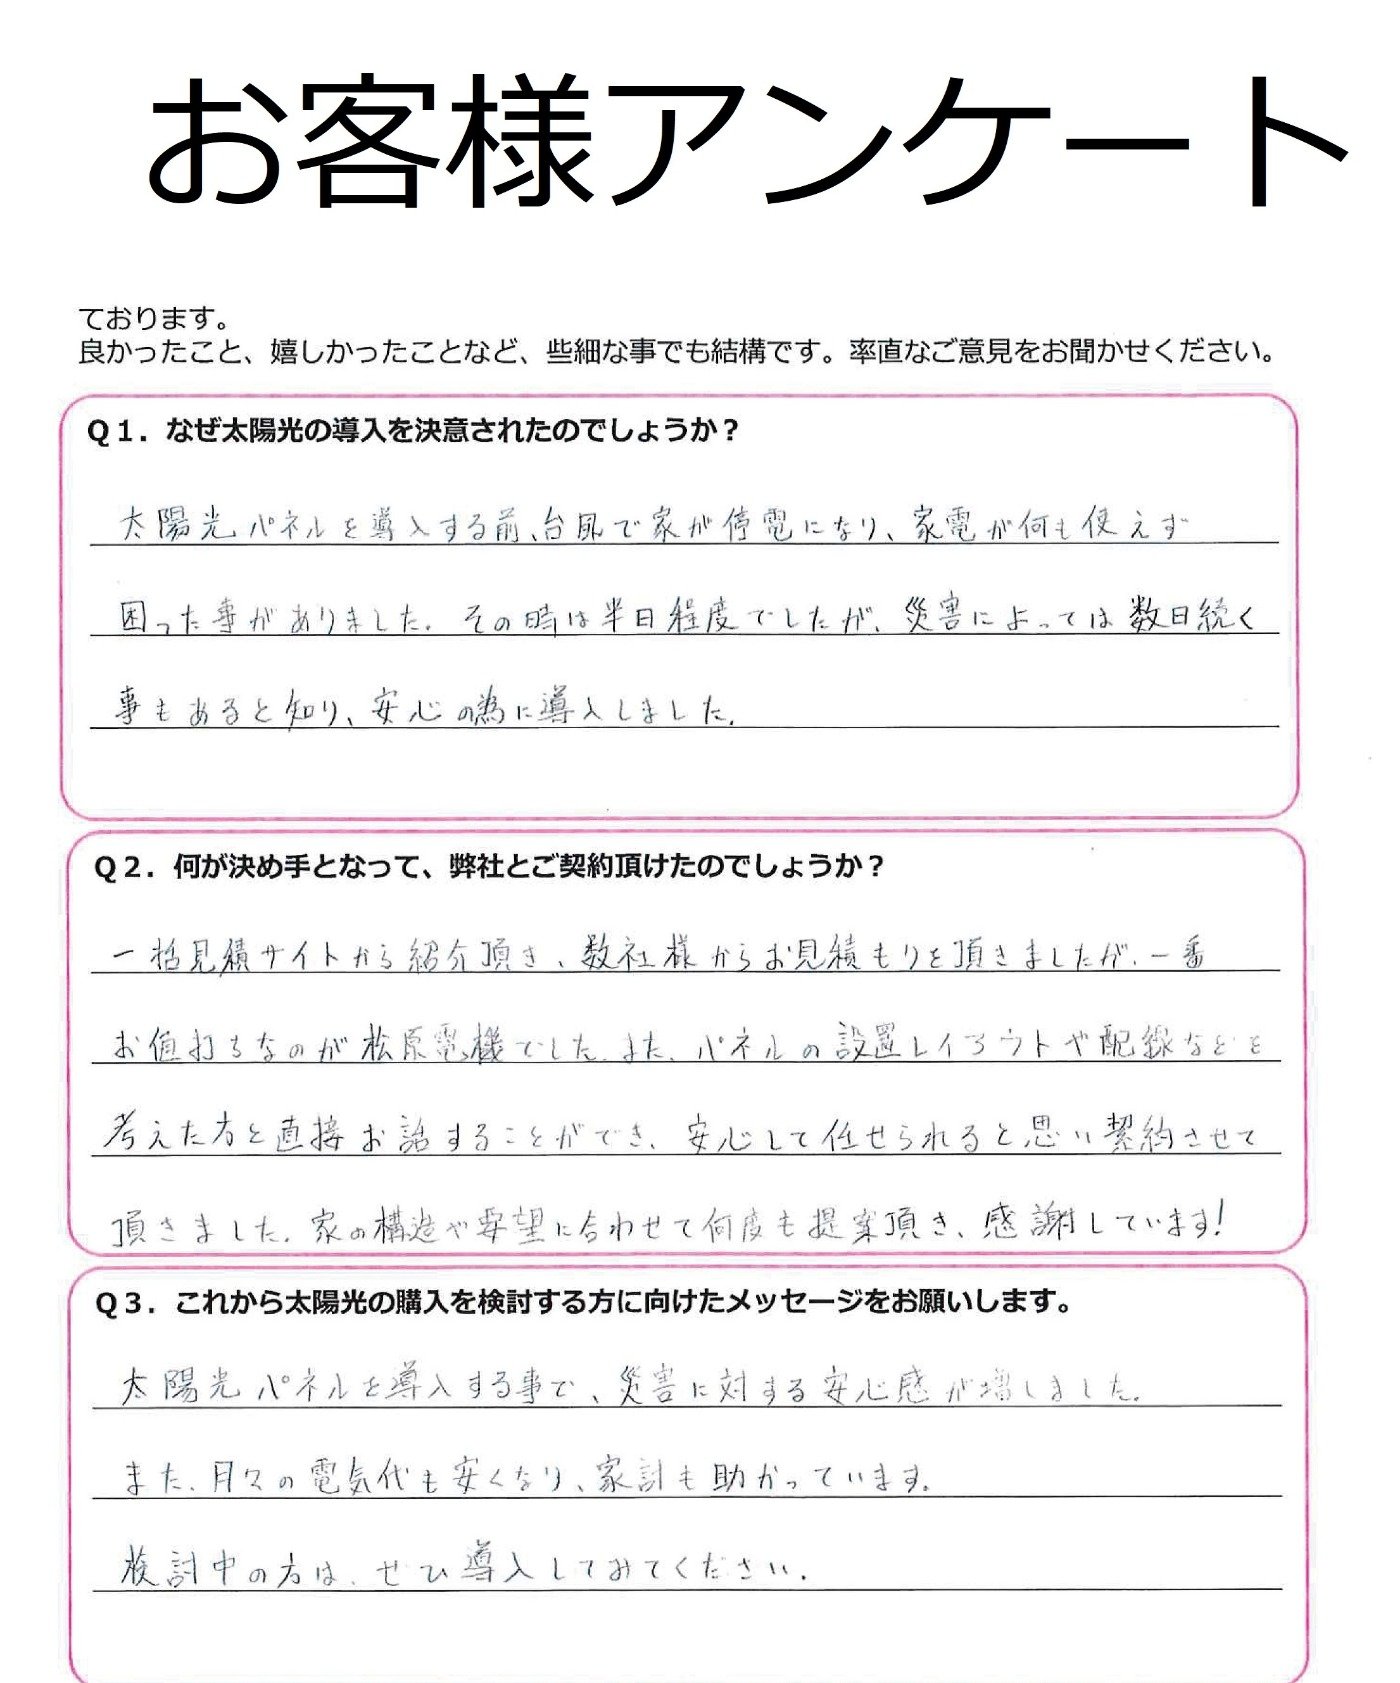 お客様アンケート
ております。
良かったこと、嬉しかったことなど、些細な事でも結構です。率直なご意見をお聞かせください。
Q1．なぜ太陽光の導入を決意されたのでしょうか？
太陽光パネルを導入する前、台風で家が停電になり、家電が何も使えず
困った事がありました。その時は半日程度でしたが、災害によっては数日続く
事もあると知り、安心の為に導入しました。
Q2．何が決め手となって、弊社とご契約頂けたのでしょうか？
一括見積サイトから紹介頂き、数社様からお見積もりを頂きましたが、一番
お値打ちなのが松原電機でした。また、パネルの設置レイアウトや配線などを
考えた方と直接お話することができ、安心して任せられると思い契約させて
頂きました。家の構造や要望に合わせて何度も提案頂き、感謝しています！
Q3．これから太陽光の購入を検討する方に向けたメッセージをお願いします。
太陽光パネルを導入する事で、災害に対する安心感が増しました。
また、月々の電気代も安くなり、家計も助かっています。
検討中の方は、ぜひ導入してみてください。